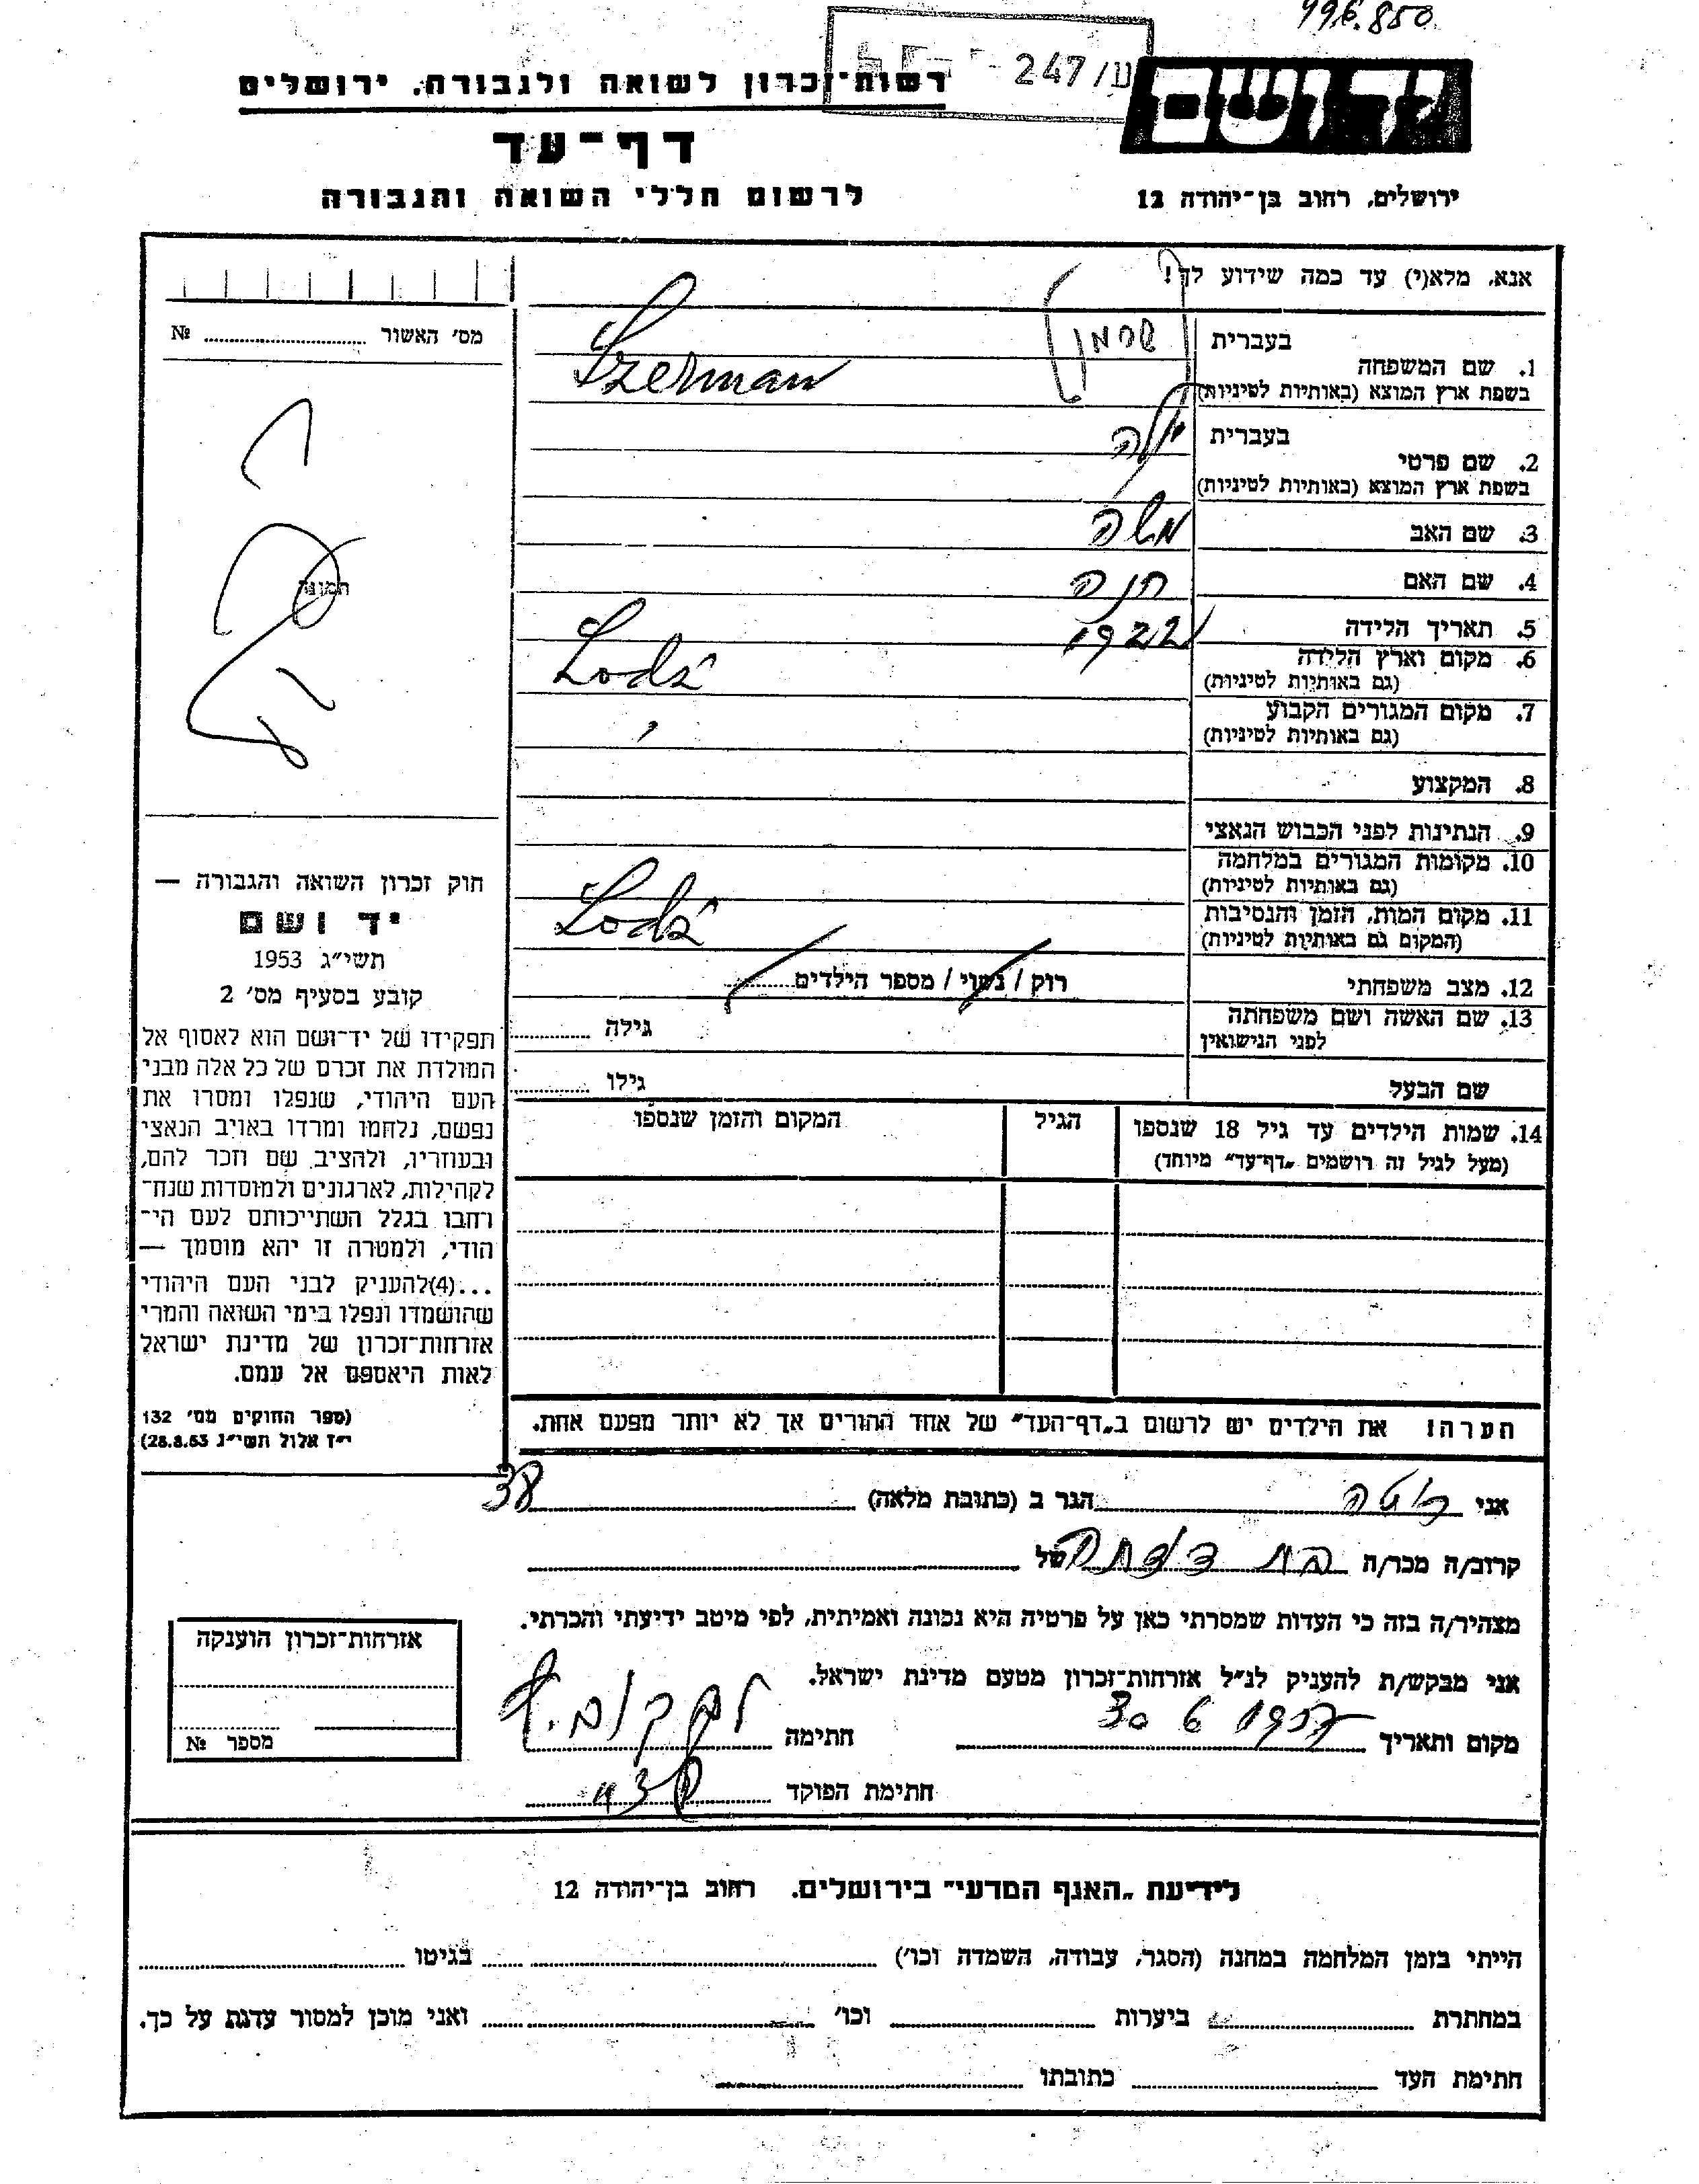 996.850
ע/247
רשות־זכרון לשואה ולגבורה, ירושלים
דף־עד
לרשום חללי השואה והגבורה
ירושלים, רחוב בן־יהודה 12
אנא, מלא(י) עד כמה שידוע לך!
מס׳ האשור № 
1. שם המשפחה
בעברית שרמן
בשפת ארץ המוצא (באותיות לטיניות) Szerman
2. שם פרטי
בעברית
בשפת ארץ המוצא (באותיות לטיניות)
3. שם האב משה
4. שם האם חנה
5. תאריך הלידה 1922
6. מקום וארץ הלידה
(גם באותיות לטיניות) Lodź
7. מקום המגורים הקבוע
(גם באותיות לטיניות) ״
8. המקצוע
9. הנתינות לפני הכבוש הנאצי
10. מקומות המגורים במלחמה
(גם באותיות לטיניות)
11. מקום המות, הזמן והנסיבות
(המקום גם באותיות לטיניות) Lodź
12. מצב משפחתי רוק / נשוי / מספר הילדים
13. שם האשה ושם משפחתה
לפני הנישואין גילה
שם הבעל גילו
14. שמות הילדים עד גיל 18 שנספו הגיל המקום והזמן שנספו
(מעל לגיל זה רושמים „דף־עד״ מיוחד)
תמונה
חוק זכרון השואה והגבורה —
יד ושם
תשי״ג 1953
קובע בסעיף מס׳ 2
תפקידו של יד־ושם הוא לאסוף אל
המולדת את זכרם של כל אלה מבני
העם היהודי, שנפלו ומסרו את
נפשם, נלחמו ומרדו באויב הנאצי
ובעוזריו, ולהציב שם וזכר להם,
לקהילות, לארגונים ולמוסדות שנח־
רחבו בגלל השתייכותם לעם הי־
הודי, ולמטרה זו יהא מוסמך —
...(4)להעניק לבני העם היהודי
שהושמדו ונפלו בימי השואה והמרי
אזרחות־זכרון של מדינת ישראל
לאות היאספם אל עמם.
(ספר החוקים מס׳ 132
י״ז אלול תשי״ג 28.8.53)
הערה! את הילדים יש לרשום ב„דף־העד״ של אחד ההורים אך לא יותר מפעם אחת.
אני הגר ב (כתובת מלאה)
קרוב/ה מכר/ה בת דודתה של
מצהיר/ה בזה כי העדות שמסרתי כאן על פרטיה היא נכונה ואמיתית, לפי מיטב ידיעתי והכרתי.
אני מבקש/ת להעניק לנ״ל אזרחות־זכרון מטעם מדינת ישראל.
מקום ותאריך 30 6 1957 חתימה
חתימת הפוקד
אזרחות־זכרון הוענקה
מספר №
לידיעת „האגף המדעי״ בירושלים, רחוב בן־יהודה 12
הייתי בזמן המלחמה במחנה (הסגר, עבודה, השמדה וכו׳) בגיטו
במחתרת ביערות וכו׳ ואני מוכן למסור עדות על כך.
חתימת העד כתובתו